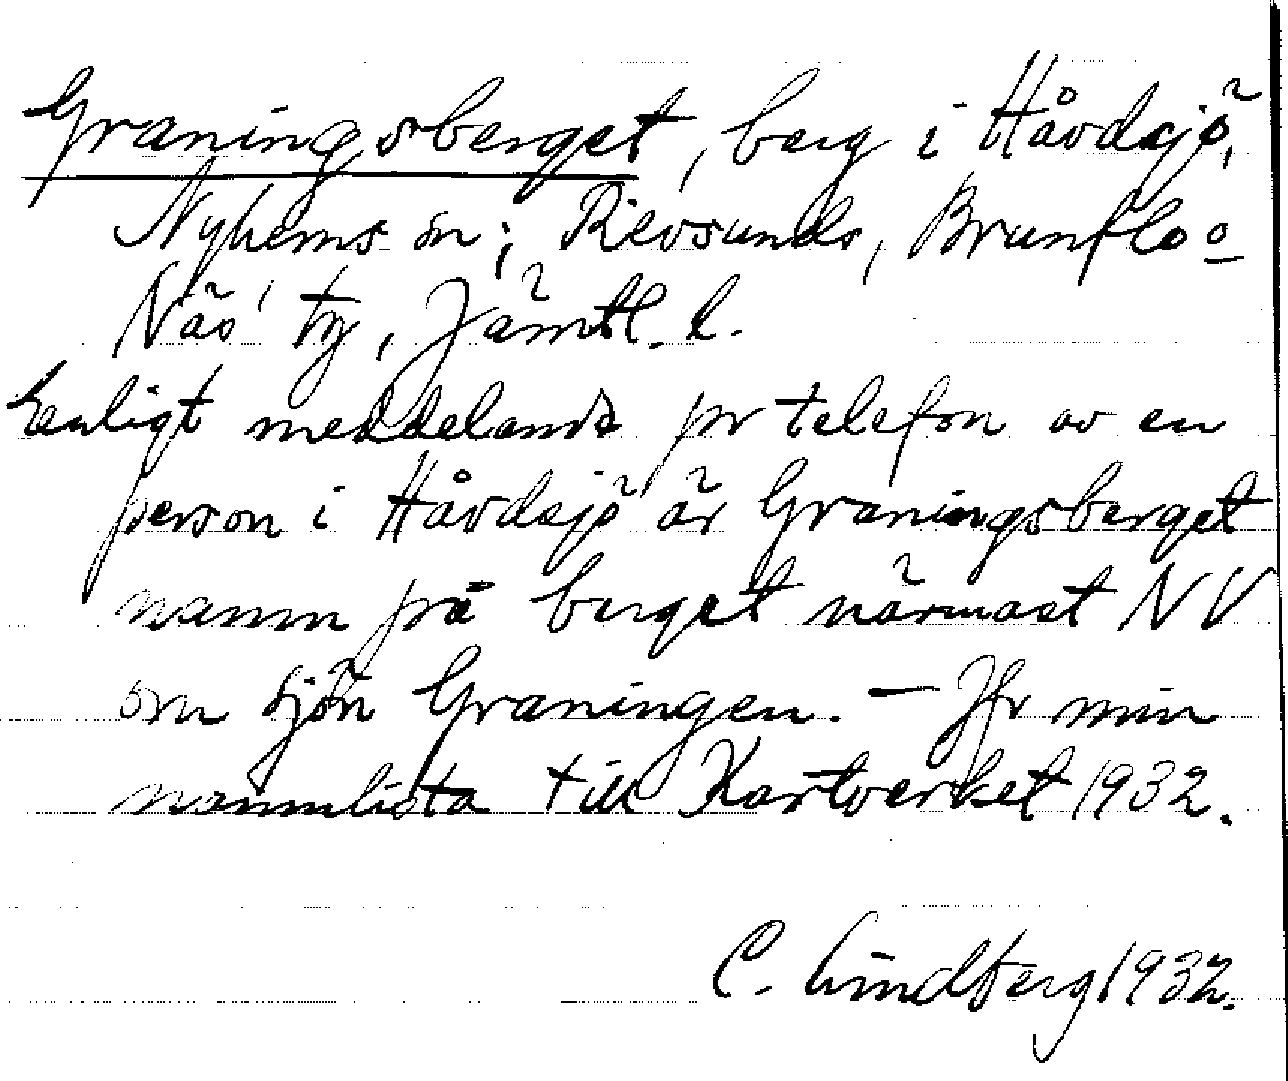 Graningsberget, berg i Håvdsjö,
Nyhems sn; Revsunds, Brunflo o
Näs' tg, Jämtl. l.
Enligt meddelande pr telefon av en
person i Håvdsjö är Graningsberget
namn på berget närmast NV
om sjön Graningen. – Jfr min
namnlista till Kartverket 1932.
C. Lindberg 1932.